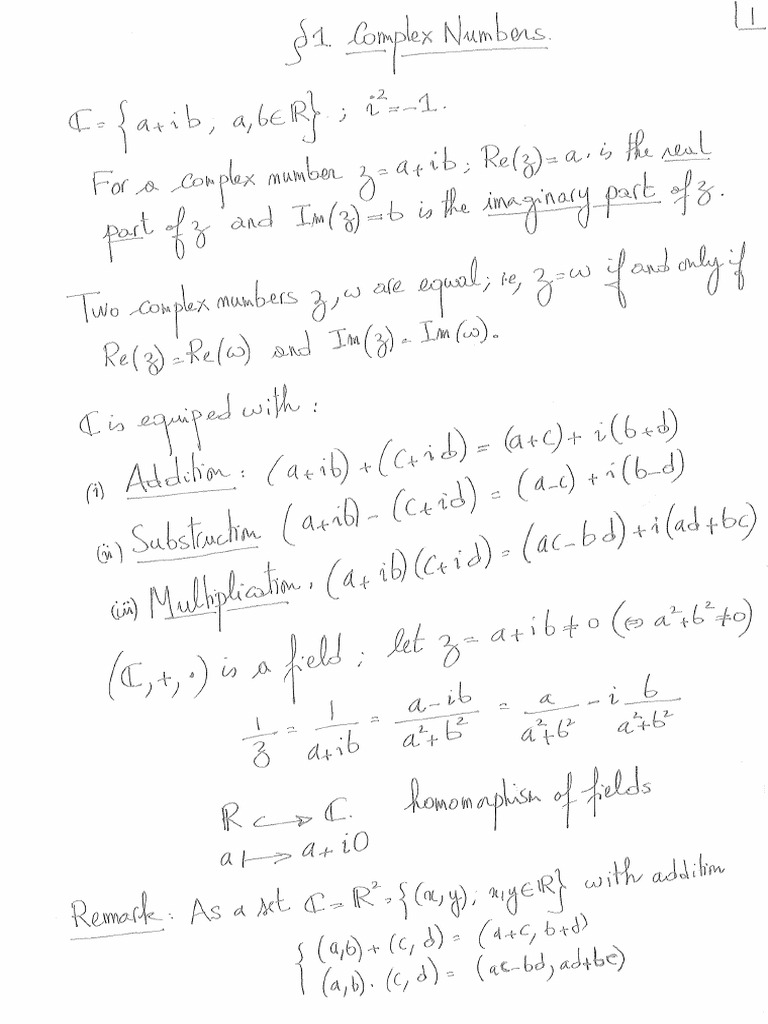 1
§1. Complex Numbers.
ℂ = { a+ib, a,b∈ℝ } ; i²=-1.
For a complex number z=a+ib; Re(z)=a. is the real
part of z and Im(z)=b is the imaginary part of z.
Two complex numbers z,w are equal; ie, z=w if and only if
Re(z)=Re(w) and Im(z)=Im(w).
ℂ is equiped with:
(i) Addition: (a+ib)+(c+id) = (a+c)+i(b+d)
(ii) Substruction (a+ib)-(c+id) = (a-c)+i(b-d)
(iii) Multiplication. (a+ib)(c+id) = (ac-bd)+i(ad+bc)
(ℂ,+,·) is a field; let z=a+ib≠0 (⇔ a²+b²≠0)
1/z = 1/(a+ib) = (a-ib)/(a²+b²) = a/(a²+b²) - i b/(a²+b²)
ℝ ↪ ℂ. homomorphism of fields
a ↦ a+i0
Remark: As a set ℂ=ℝ²={(x,y); x,y∈ℝ} with addition
{ (a,b)+(c,d) = (a+c, b+d)
(a,b)·(c,d) = (ac-bd, ad+bc)